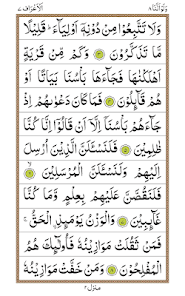 وَلَوْ اَنَّنَا ٨ اَلْاَعْرَاف ٧
وَلَا تَتَّبِعُوْا مِنْ دُوْنِهٖۤ اَوْلِيَآءَ ؕ قَلِيْلًا
مَّا تَذَكَّرُوْنَ ﴿۳﴾ وَكَمْ مِّنْ قَرْيَةٍ
اَهْلَكْنٰهَا فَجَآءَهَا بَاْسُنَا بَيَاتًا اَوْ
هُمْ قَآئِلُوْنَ ﴿۴﴾ فَمَا كَانَ دَعْوٰىهُمْ اِذْ
جَآءَهُمْ بَاْسُنَاۤ اِلَّاۤ اَنْ قَالُوْۤا اِنَّا كُنَّا
ظٰلِمِيْنَ ﴿۵﴾ فَلَنَسْـَٔلَنَّ الَّذِيْنَ اُرْسِلَ
اِلَيْهِمْ وَلَنَسْـَٔلَنَّ الْمُرْسَلِيْنَ ﴿۶﴾
فَلَنَقُصَّنَّ عَلَيْهِمْ بِعِلْمٍ وَّمَا كُنَّا
غَآئِبِيْنَ ﴿۷﴾ وَالْوَزْنُ يَوْمَئِذِ الْحَقُّ ۚ
فَمَنْ ثَقُلَتْ مَوَازِيْنُهٗ فَاُولٰٓئِكَ هُمُ
الْمُفْلِحُوْنَ ﴿۸﴾ وَمَنْ خَفَّتْ مَوَازِيْنُهٗ
منزل ٢